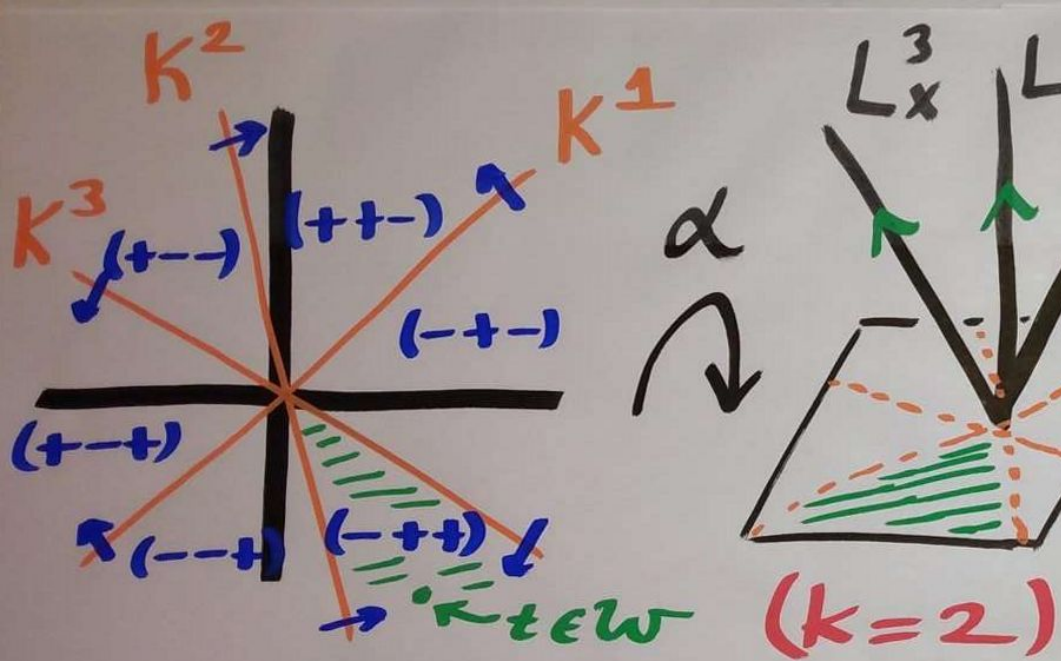 K²
K¹
K³
(+--)
(++-)
(-+-)
(+-+)
(--+)
(-++)
t∈W
α
L³ₓ
L
(k=2)